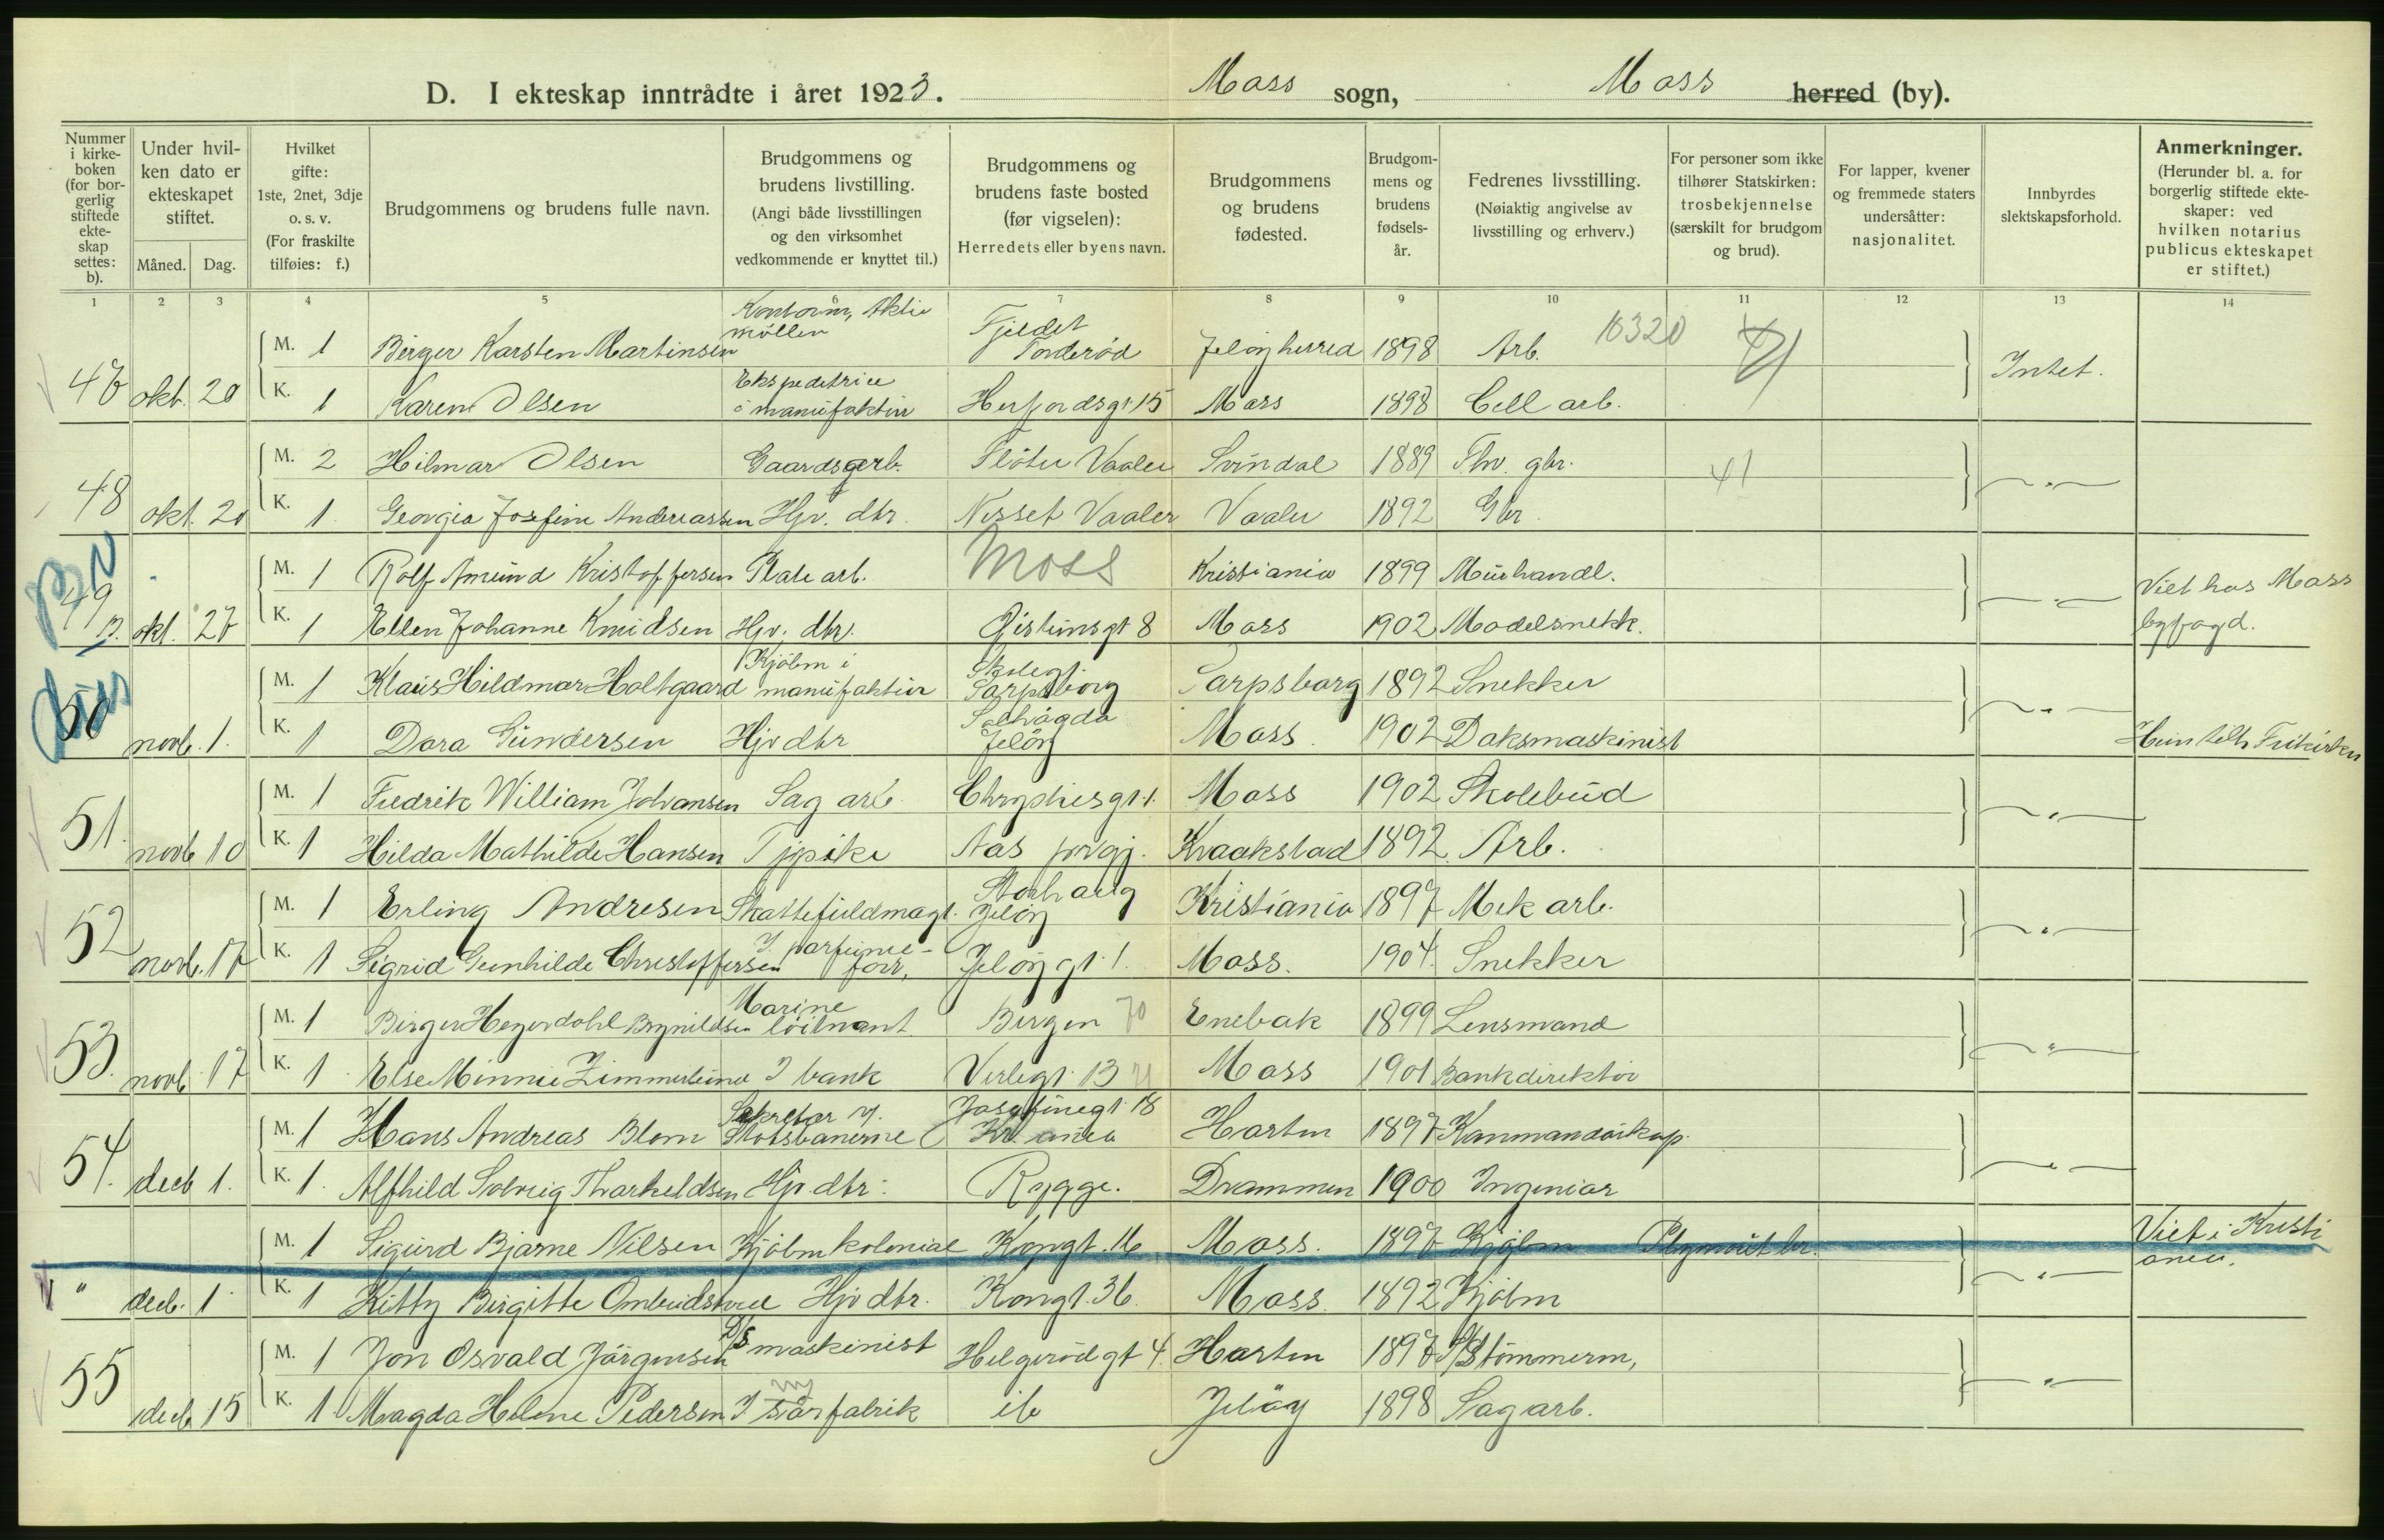 D. I ekteskap inntrådte i året 1923. Moss sogn, Moss herred (by).
Nummer i kirkeboken (for borgerlig stiftede ekteskap settes: b).
Under hvilken dato er ekteskapet stiftet.
Måned. Dag.
Hvilket gifte: 1ste, 2net, 3dje o. s. v. (For fraskilte tilføies: f.)
Brudgommens og brudens fulle navn.
Brudgommens og brudens livstilling. (Angi både livsstillingen og den virksomhet vedkommende er knyttet til.)
Brudgommens og brudens faste bosted (før vigselen): Herredets eller byens navn.
Brudgommens og brudens fødested.
Brudgommens og brudens fødselsår.
Fedrenes livsstilling. (Nøiaktig angivelse av livsstilling og erhverv.)
For personer som ikke tilhører Statskirken: trosbekjennelse (særskilt for brudgom og brud).
For lapper, kvener og fremmede staters undersåtter: nasjonalitet.
Innbyrdes slektskapsforhold.
Anmerkninger. (Herunder bl. a. for borgerlig stiftede ekteskaper: ved hvilken notarius publicus ekteskapet er stiftet.)
1 2 3 4 5 6 7 8 9 10 11 12 13 14
M. 1 Birger Karsten Martinsen Kontorm, Aktie møllen Fjeldet Torderød Jeløy herred 1898 Arb. 10320
47 okt. 20 K. 1 Karen Olsen Ekspeditrice i manufaktur Herfordsgt 15 Moss 1898 Cell arb. Intet.
M. 2 Hilmar Olsen Gaardsarb. Fløter Vaaler Svindal 1889 Thv. gbr. 41
48 okt. 20 K. 1 Georgia Josefine Andreassen Hjv. dtr. Nesset Vaaler Vaaler 1892 Gbr. — " —
M. 1 Rolf Amund Kristoffersen Plate arb. Moss Kristiania 1899 Murhandl. Viet hos Moss
49 B. okt. 27 K. 1 Ellen Johanne Knudsen Hjv. dtr. Gistumsgt 8 Moss 1902 Modelsnekk. — " — byfogd.
M. 1 Klaus Hildmar Holtgaard Kjøbm i manufaktur Skolegt. Sarpsborg Sarpsborg 1892 Snekker
50 novb. 1. K. 1 Dora Gundersen Hjv dtr Solhøgda Jeløy Moss. 1902 Doksmaskinist — " — Hun tilh Frikirken
M. 1 Fredrik William Johansen Sag arb. Chrystiesgt. 1. Moss 1902 Skolebud
51. novb 10 K. 1 Hilda Mathilde Hansen Tjpike Aas prvgj. Kraakstad 1892 Arb. — " —
M. 1 Erling Andresen Skattefuldmagt. Storhaug Jeløy Kristiania 1897 Mek arb.
52 novb. 17 K. 1 Sigrid Gunhilde Christoffersen I parfumeforr. Jeløygt. 1. Moss. 1904. Snekker — " —
M. 1 Birger Heyerdahl Brynildsen Marine løitnant Bergen 70 Enebak 1899 Lensmand
53. novb 17 K. 1 Else Minnie Zimmerlund I bank Verlegt. 13 Moss 1901 Bankdirektør — " —
M. 1 Hans Andreas Blom Sekretær v. Statsbanerne Josefinegt. 18 Kr. ania Horten 1897 Kommandørkap.
54. decb 1. K. 1. Alfhild Solveig Thorkeldsen Hjv. dtr. Rygge. Drammen 1900 Ingeniør — " —
M. 1 Sigurd Bjarne Nilsen Kjøbm kolonial Kongt. 16 Moss. 1897 Kjøbm Plymoutbr. Viet i Kristi
" decb. 1 K. 1 Kitty Birgitte Ombudstvedt Hjv dtr. Kongt. 36. Moss. 1892 Kjøbm — " — ania.
M. 1 Jon Osvald Jørgensen D/S maskinist Helgerødgt 4. Horten 1897 Tømmerm,
55 decb. 15 K. 1 Magda Helene Pedersen I fabrik ib Jeløy 1898 Sagarb. — " —